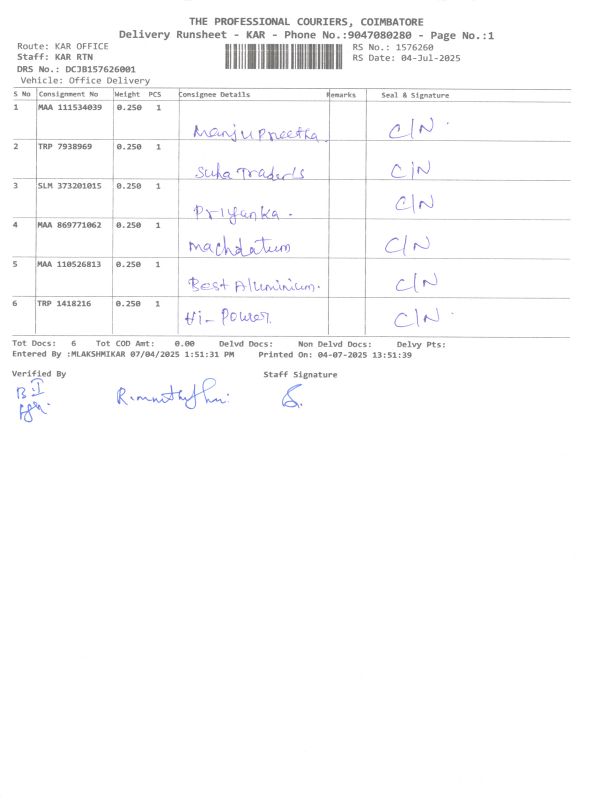 THE PROFESSIONAL COURIERS, COIMBATORE
Delivery Runsheet - KAR - Phone No.:9047080280 - Page No.:1
Route: KAR OFFICE RS No.: 1576260
Staff: KAR RTN RS Date: 04-Jul-2025
DRS No.: DCJB157626001
Vehicle: Office Delivery
S No Consignment No Weight PCS Consignee Details Remarks Seal & Signature
1 MAA 111534039 0.250 1 Manju Preetha. C/N
2 TRP 7938969 0.250 1 Suha Trader's C/N
3 SLM 373201015 0.250 1 Priyanka. C/N
4 MAA 869771062 0.250 1 Machdatum C/N
5 MAA 110526813 0.250 1 Best Aluminium. C/N
6 TRP 1418216 0.250 1 Hi-Power. C/N
Tot Docs: 6 Tot COD Amt: 0.00 Delvd Docs: Non Delvd Docs: Delvy Pts:
Entered By :MLAKSHMIKAR 07/04/2025 1:51:31 PM Printed On: 04-07-2025 13:51:39
Verified By Staff Signature